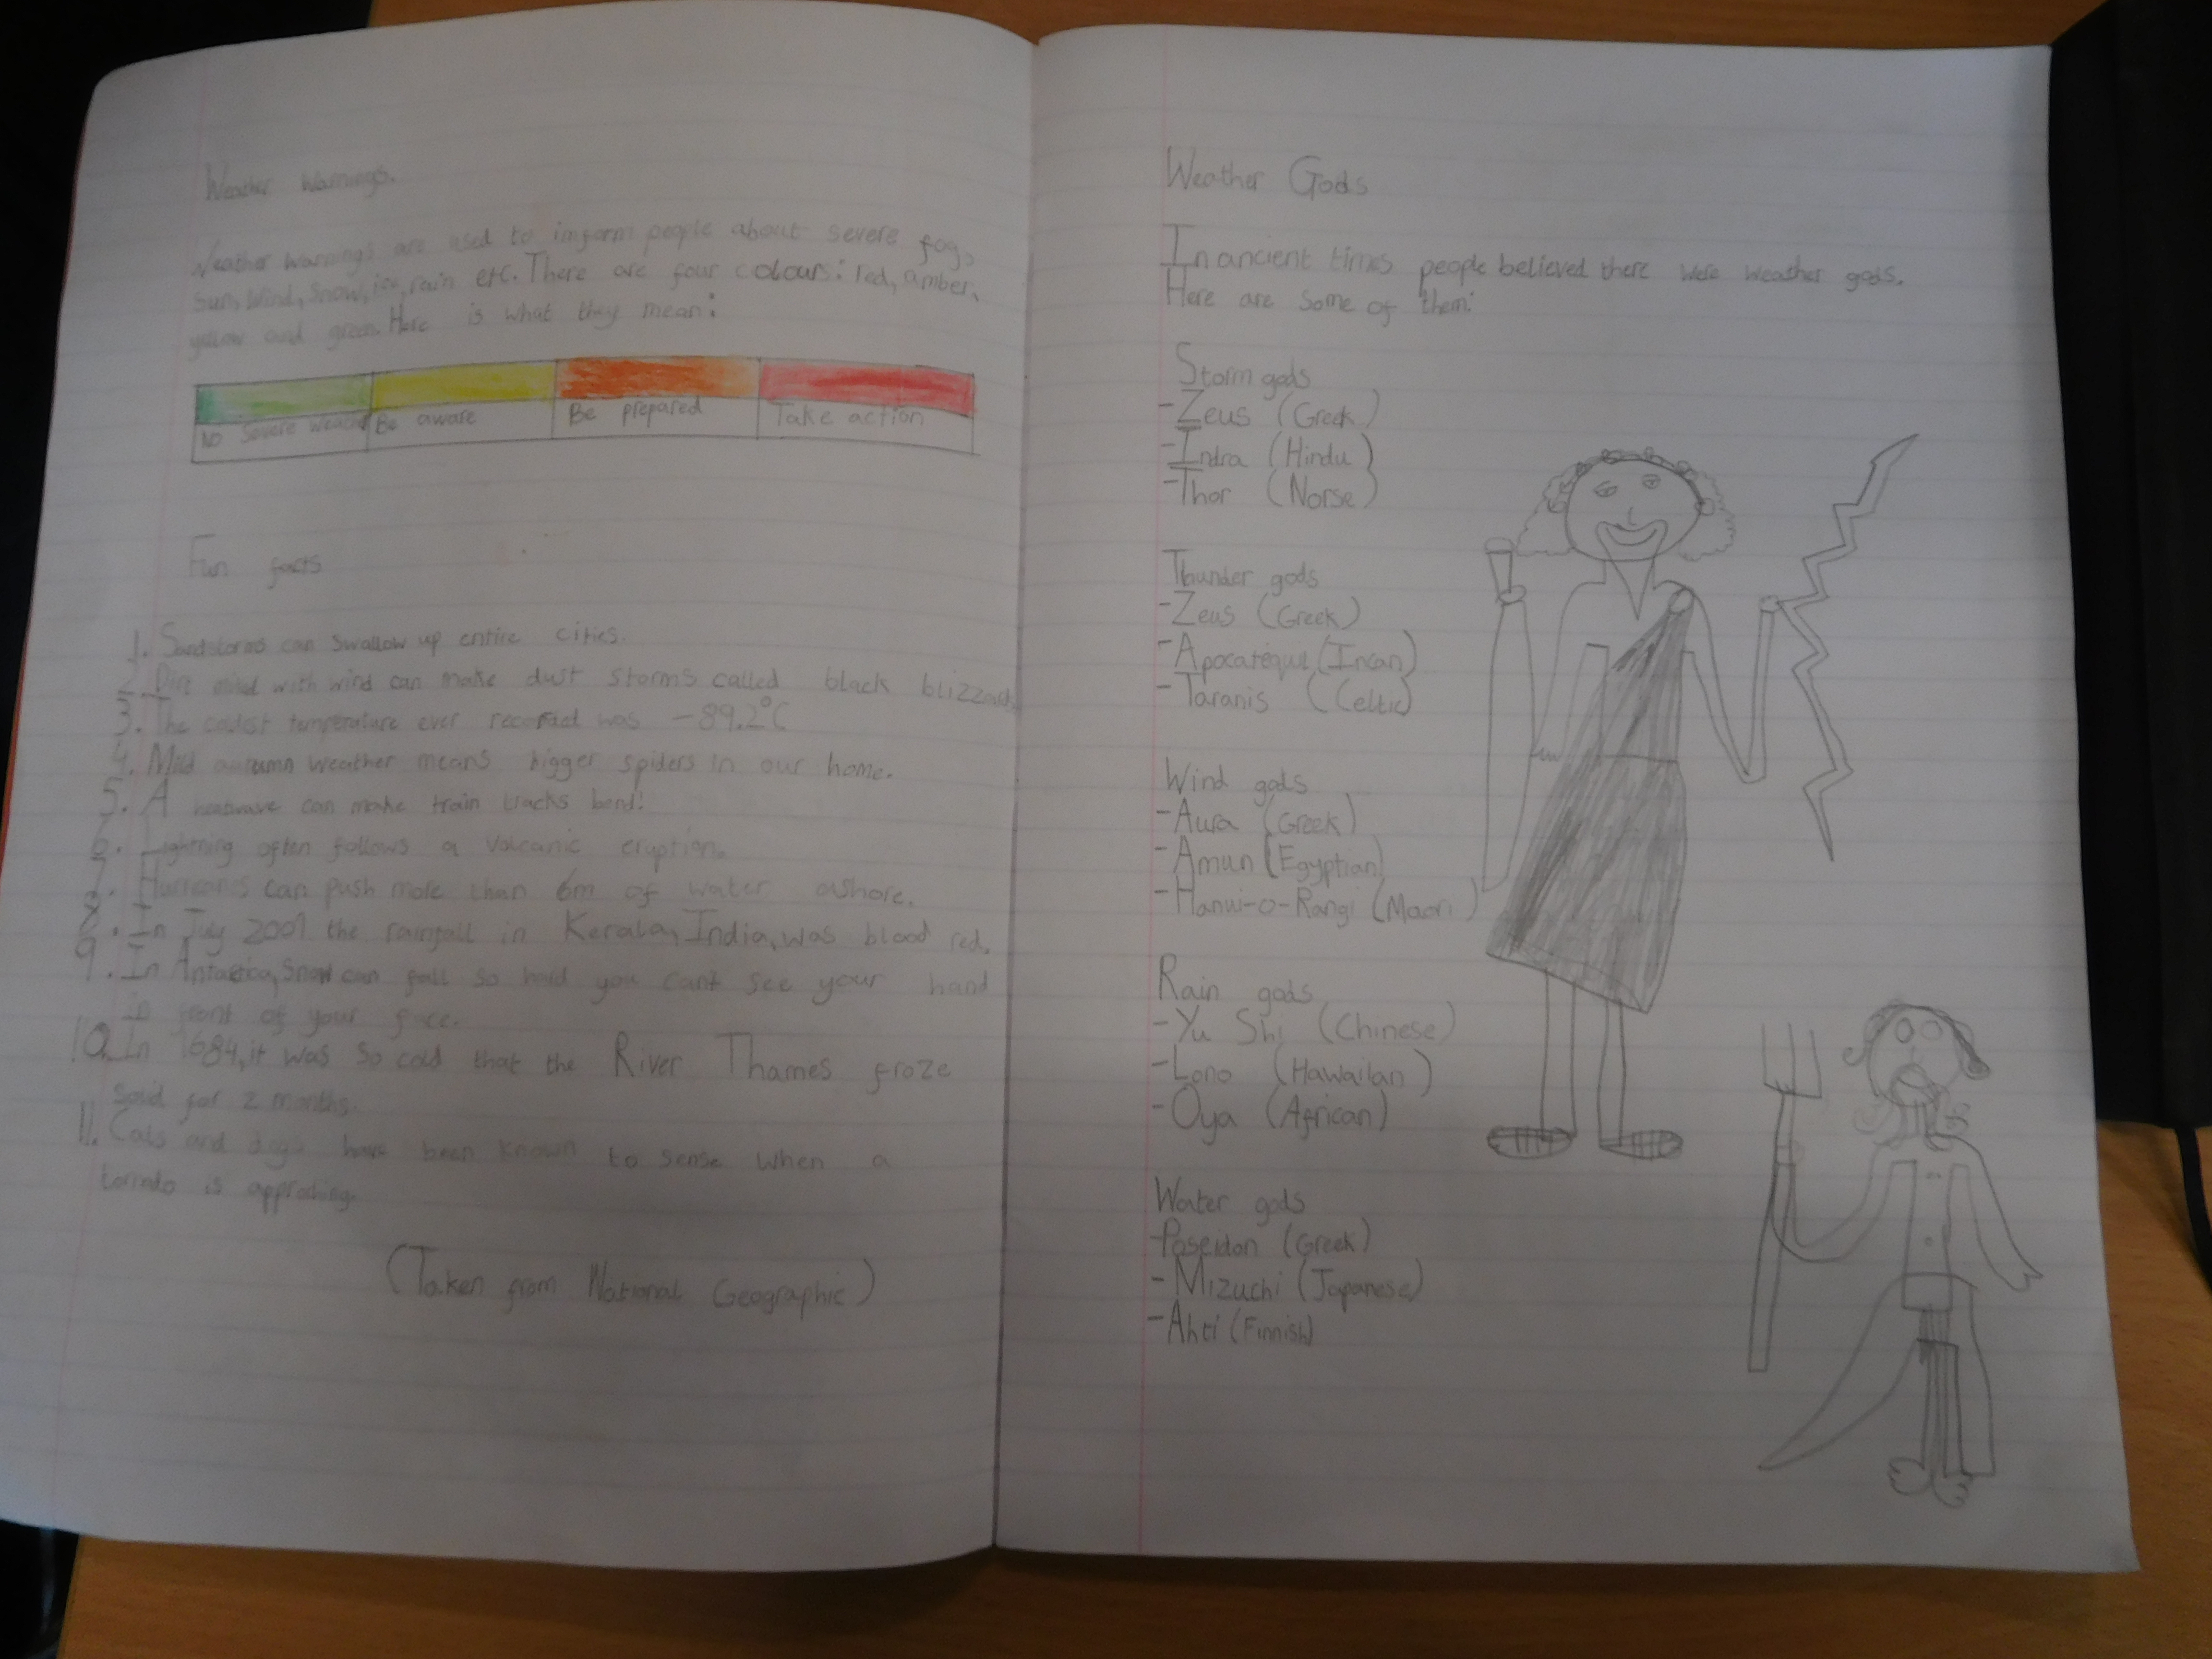 Weather Warnings.
Weather warnings are used to imform people about severe fog,
sun, wind, snow, ice, rain etc. There are four colours: red, amber,
yellow and green. Here is what they mean:
No Severe weather
Be aware
Be prepared
Take action
Fun facts
1. Sandstorms can swallow up entire cities.
2. Dirt mixed with wind can make dust storms called black blizzards
3. The coldest temperature ever recorded was -89.2°C
4. Mild autumn weather means bigger spiders in our home.
5. A heatwave can make train tracks bend!
6. Lightning often follows a volcanic eruption.
7. Hurricanes can push more than 6m of water ashore.
8. In July 2001 the rainfall in Kerala, India, was blood red.
9. In Antartica, snow can fall so hard you cant see your hand
in front of your face.
10. In 1684, it was so cold that the River Thames froze
solid for 2 months.
11. Cats and dogs have been known to sense when a
tornado is approching.
(Taken from National Geographic)
Weather Gods
In ancient times people believed there were weather gods.
Here are some of them:
Storm gods
-Zeus (Greek)
-Indra (Hindu)
-Thor (Norse)
Thunder gods
-Zeus (Greek)
-Apocatequil (Incan)
-Taranis (Celtic)
Wind gods
-Aura (Greek)
-Amun (Egyptian)
-Hanui-o-Rangi (Maori)
Rain gods
-Yu Shi (Chinese)
-Lono (Hawaiian)
-Oya (African)
Water gods
-Poseidon (Greek)
-Mizuchi (Japanese)
-Ahti (Finnish)